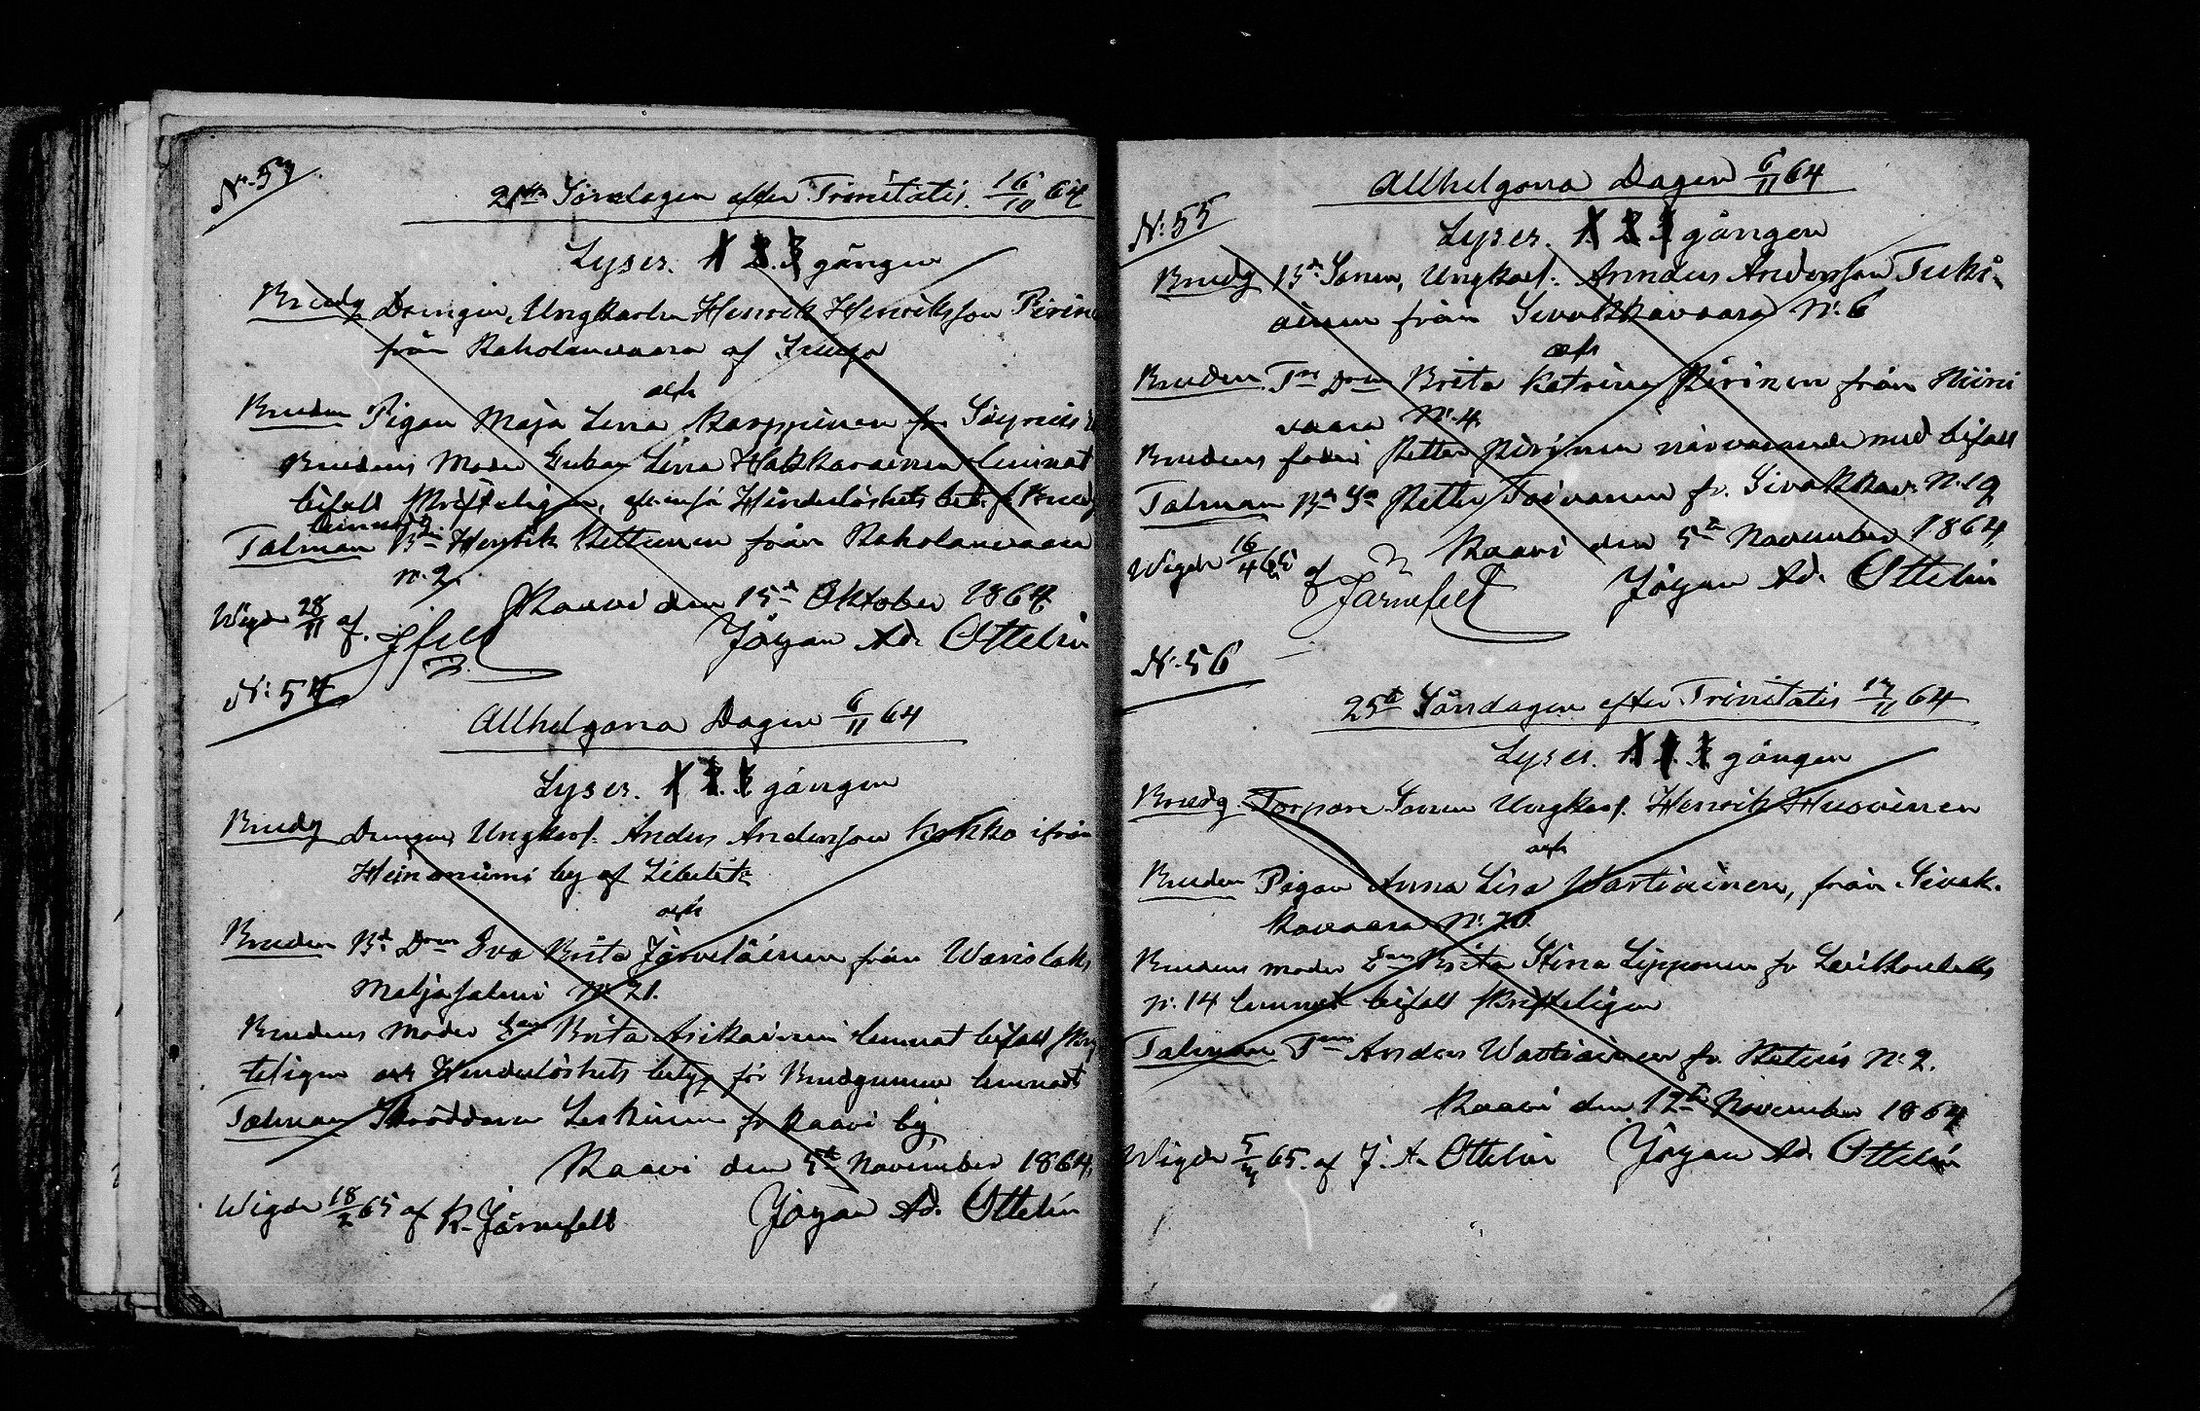 N:53
21sta Söndagen efter Trinitatis 16/10 64
Lyses. 1 2. 3 gången
Brudg Drengen, Ungkarlen Henrik Henriksson Pirin
från Raholanvaara af
och
Bruden Pigan Maja Lena Karppinen fr
Brudens Moder Enkan Lena Hakkarainen lemnat
bifall skrifteligen, Hinderlöshets bet. f. Brudg
lemnadt
Talman Bdn Henrik Pettinen från Raholanvaara
N:2.
Kaavi den 15d Oktober 1864
Wigde 28/11 af. Jfelt
Jöran Ad. Ottelin
N:54
Allhelgona Dagen 6/11 64
Lyses. 1 2. 3 gången
Brudg Drengen, Ungkarl. Anders Andersson Kokko ifrån
Heinoniemi by af Libelits
och
Bruden Bd Drn Eva Brita Järveläinen från Warislaks
Maljasalmi N:21.
Brudens Moder Enn Brita Asikainen lemnat bifall skrif
teligen och Hinderlöshets betyg för Brudgummen lemnadt
Talman Skräddaren Leskinen fr Kaavi by
Kaavi den 5d November 1864,
Wigde 18/2 65 af K. Järnefelt
Jöran Ad. Ottelin
Allhelgona Dagen 6/11 64
N:55
Lyses. 1. 2. 3 gången
Brudg Bd. Sonen, Ungkarl. Anders Andersson Tuki-
ainen från Sivakkavaara N:6
och
Bruden Tn Drn Brita Katrina Pirinen från Niini
vaara N:4
Brudens fader Petter Pirinen närvarande med bifall
Talman Bn Sn Petter Toivanen fr. Sivakkav. N:19
Kaavi den 5d November 1864,
Wigde 16/4 65 af Järnefelt
Jöran Ad. Ottelin
N:56
25t Söndagen efter Trinitatis 13/11 64
Lyses. 1. 2. 3 gången
Brudg Torpare Sonen Ungkarl. Henrik Huovinen
och
Bruden Pigan Anna Lisa Wartiainen, från Sivak-
kavaara N:20.
Brudens moder Enn Brita Stina Lipponen fr
N:14 lemnat bifall skrifteligen
Talman Tnn Anders Wartiainen fr. N:2.
Kaavi den 12te November 1864
Wigde 65. af J. A. Ottelin
Jöran Ad. Ottelin